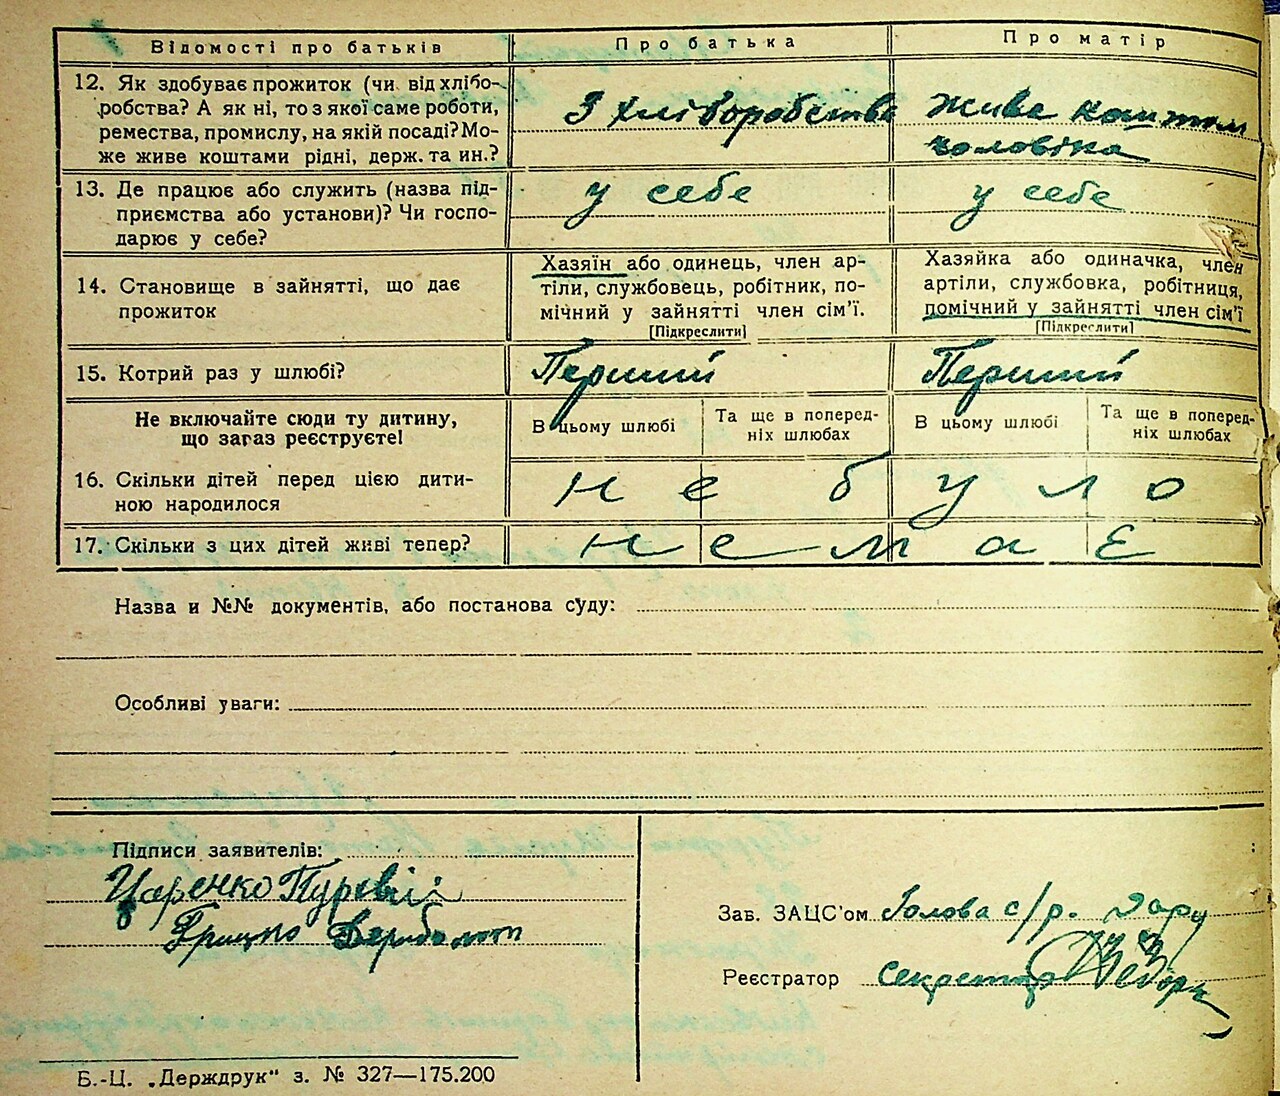 Відомості про батьків
Про батька
Про матір
12. Як здобуває прожиток (чи від хлібо-
робства? А як ні, то з якої саме роботи,
ремества, промислу, на якій посаді? Мо-
же живе коштами рідні, держ. та ин.?
З хліборобства
Живе коштом
чоловіка
13. Де працює або служить (назва під-
приємства або установи)? Чи госпо-
дарює у себе?
у себе
у себе
14. Становище в зайнятті, що дає
прожиток
Хазяїн або одинець, член ар-
тіли, службовець, робітник, по-
мічний у зайнятті член сім'ї.
[Підкреслити]
Хазяйка або одиначка, член
артіли, службовка, робітниця,
помічний у зайнятті член сім'ї
[Підкреслити]
15. Котрий раз у шлюбі?
Перший
Перший
Не включайте сюди ту дитину,
що загаз реєструєте!
В цьому шлюбі
Та ще в поперед-
ніх шлюбах
В цьому шлюбі
Та ще в поперед-
ніх шлюбах
16. Скільки дітей перед цією дити-
ною народилося
не було
17. Скільки з цих дітей живі тепер?
немає
Назва и №№ документів, або постанова суду:
Особливі уваги:
Підписи заявителів:
Царенко
Грицко
Зав. ЗАЦС'ом Голова с/р.
Реєстратор секретар
Б.-Ц. „Держдрук" з. № 327—175.200